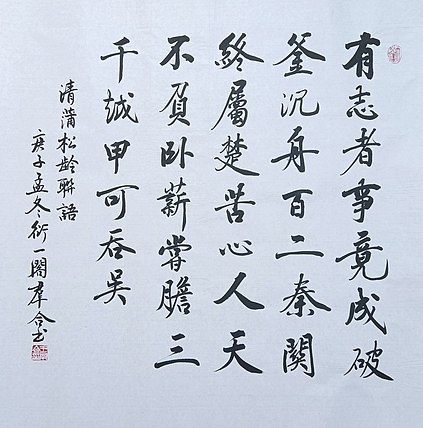 有志者事竟成破
釜沉舟百二秦關
終屬楚苦心人天
不負卧薪嘗膽三
千越甲可吞吴
清蒲松齡聯語
庚子孟冬衍一閣羣合书